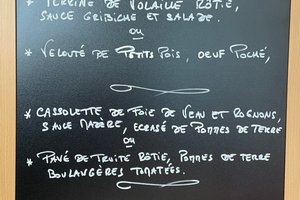 * TERRINE DE VOLAILLE RÔTIE,
SAUCE GRIBICHE ET SALADE.
OU
* VELOUTÉ DE PETITS POIS, OEUF POCHÉ,
* CASSOLETTE DE FOIE DE VEAU ET ROGNONS,
SAUCE MADÈRE, ECRASÉ DE POMMES DE TERRE
OU
* PAVÉ DE TRUITE RÔTIE, POMMES DE TERRE
BOULANGÈRES TOMATÉES.